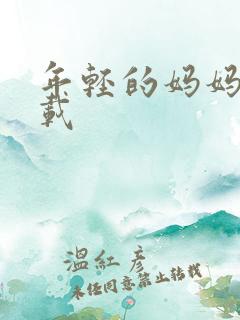 年轻的妈妈
载
温红彦
未经同意禁止转载